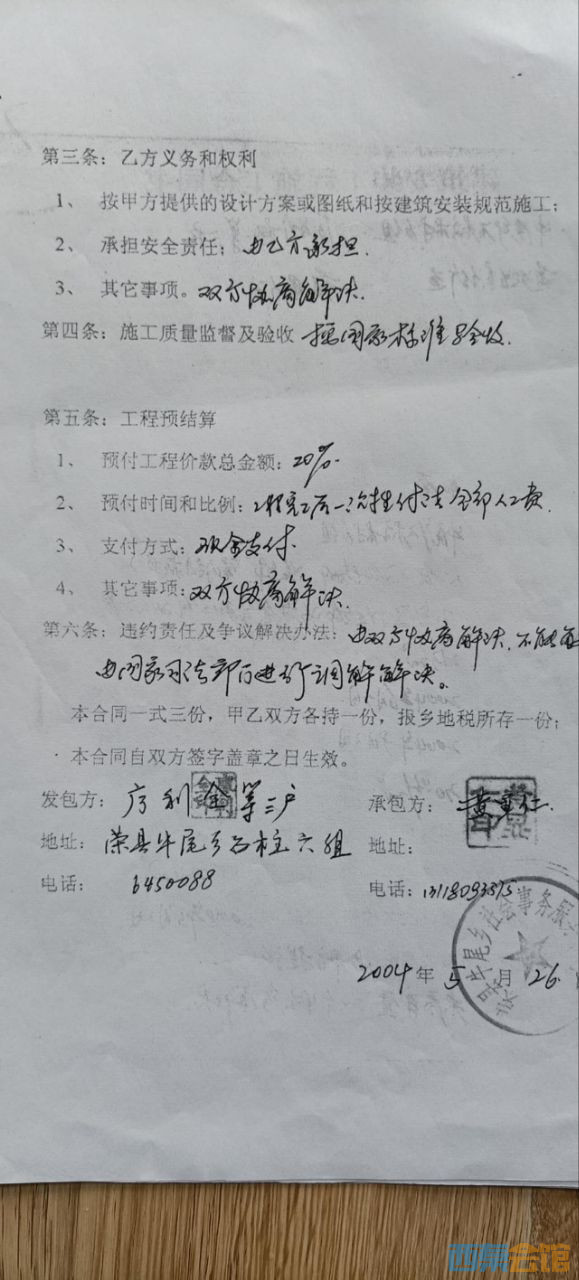 第三条：乙方义务和权利
1、 按甲方提供的设计方案或图纸和按建筑安装规范施工；
2、 承担安全责任；由乙方承担
3、 其它事项。双方协商解决.
第四条：施工质量监督及验收 按国家标准验收.
第五条：工程预结算
1、 预付工程价款总金额：20%.
2、 预付时间和比例：工程完工后一次性付清全部人工费.
3、 支付方式：现金支付.
4、 其它事项：双方协商解决.
第六条：违约责任及争议解决办法：由双方协商解决.不能
由国家司法部门进行调解解决。
本合同一式三份，甲乙双方各持一份，报乡地税所存一份；
本合同自双方签字盖章之日生效。
发包方： 利金等三户
承包方：黄
地址：荣县牛尾乡石柱六组
地址：
电话： 6450088
电话：
牛尾乡社会事务服
2004年5月26
西帛会馆